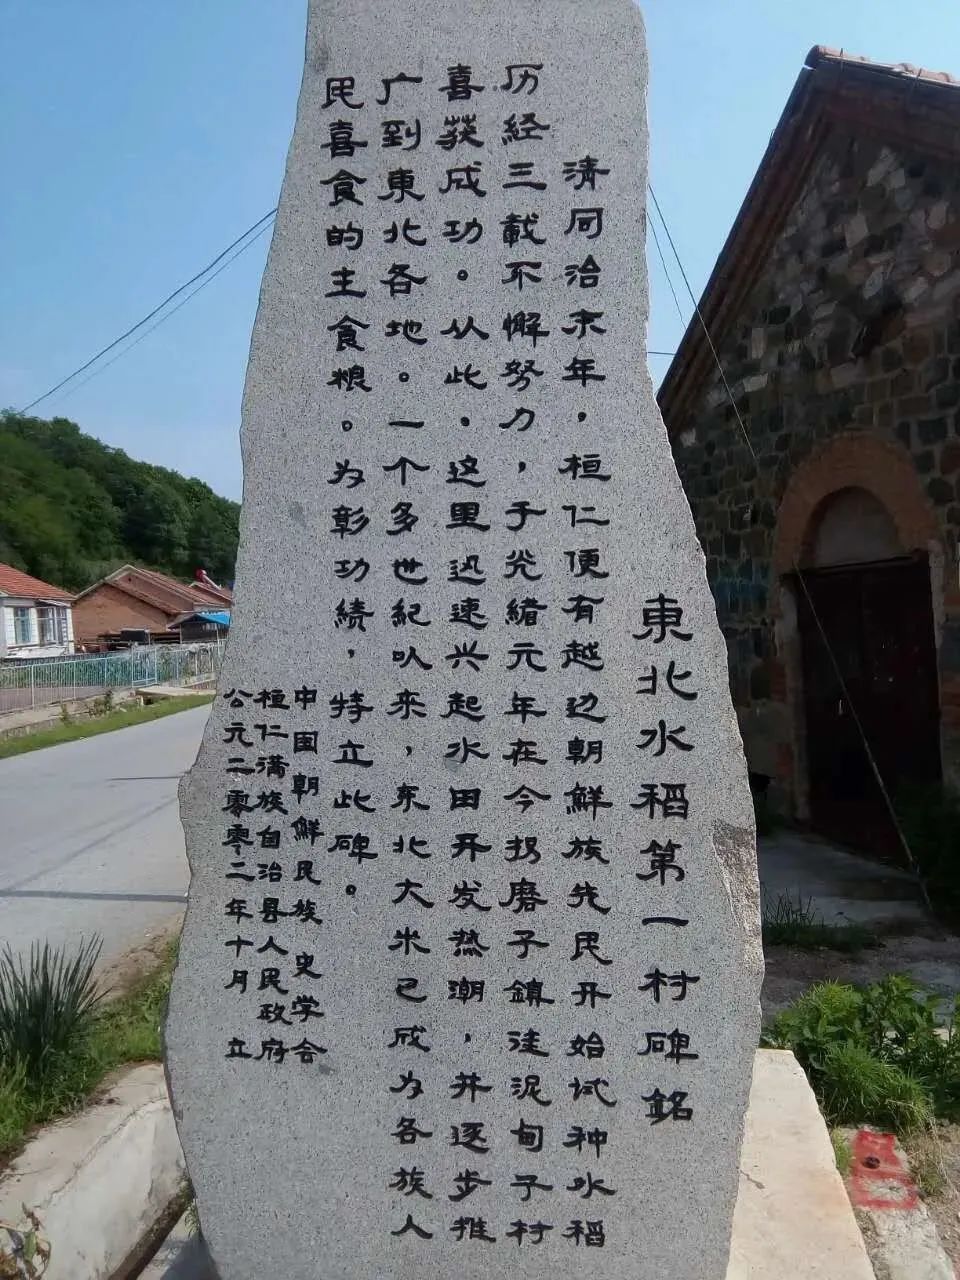 東北水稻第一村碑銘
清同治末年，桓仁便有越边朝鮮族先民开始试种水稻
历经三載不懈努力，于光緒元年在今拐磨子鎮洼泥甸子村
喜获成功。从此，这里迅速兴起水田开发热潮，并逐步推
广到東北各地。一个多世紀以来，东北大米已成为各族人
民喜食的主食粮。为彰功績，特立此碑。
中国朝鮮民族史学会
桓仁满族自治县人民政府
公元二零零二年十月 立